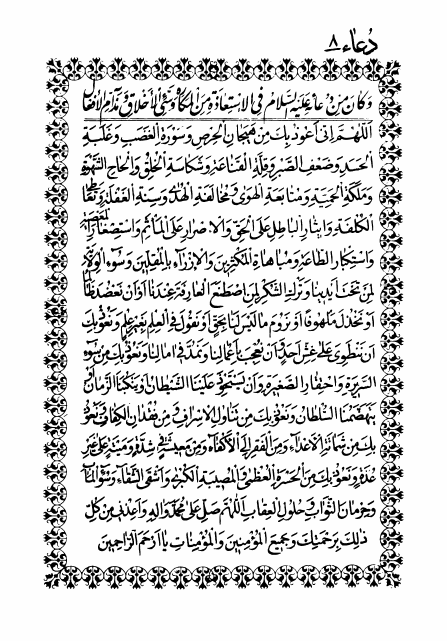 دُعاء ٨
وَكانَ مِنْ دُعائِهِ عَلَيْهِ السَّلامُ فِي الاِسْتِعاذَةِ مِنَ الْمَكارِهِ وَسَيِّئِ الْأَخْلاقِ وَمَذامِّ الْأَفْعالِ
اَللّهُمَّ اِنّي اَعُوذُ بِكَ مِنْ هَيَجانِ الْحِرْصِ وَسَوْرَةِ الْغَضَبِ وَغَلَبَةِ
الْحَسَدِ وَضَعْفِ الصَّبْرِ وَقِلَّةِ الْقَناعَةِ وَشَكاسَةِ الْخُلْقِ وَاِلْحاحِ الشَّهْوَةِ
وَمَلَكَةِ الْحَمِيَّةِ وَمُتابَعَةِ الْهَوى وَمُخالَفَةِ الْهُدى وَسِنَةِ الْغَفْلَةِ وَتَعاطِي
الْكُلْفَةِ وَاِيثارِ الْباطِلِ عَلَى الْحَقِّ وَالْاِصْرارِ عَلَى الْمَأْثَمِ وَاسْتِصْغارِ الْمَعْصِيَةِ
وَاسْتِكْبارِ الطّاعَةِ وَمُباهاةِ الْمُكْثِرينَ وَالْاِزْرآءِ بِالْمُقِلّينَ وَسُوءِ الْوِلايَةِ
لِمَنْ تَحْتَ اَيْدينا وَتَرْكِ الشُّكْرِ لِمَنِ اصْطَنَعَ الْعارِفَةَ عِنْدَنا اَوْ اَنْ نَعْضُدَ ظالِماً
اَوْ نَخْذُلَ مَلْهُوفاً اَوْ نَرُومَ ما لَيْسَ لَنا بِحَقٍّ اَوْ نَقُولَ فِي الْعِلْمِ بِغَيْرِ عِلْمٍ وَنَعُوذُ بِكَ
اَنْ نَنْطَوِيَ عَلى غِشِّ اَحَدٍ وَاَنْ نُعْجَبَ بِاَعْمالِنا وَنَمُدَّ في امالِنا وَنَعُوذُ بِكَ مِنْ سُوءِ
السَّريرَةِ وَاحْتِقارِ الصَّغيرَةِ وَاَنْ يَسْتَحْوِذَ عَلَيْنَا الشَّيْطانُ اَوْ يَنْكُبَنَا الزَّمانُ اَوْ
يَتَهَضَّمَنَا السُّلْطانُ وَنَعُوذُ بِكَ مِنْ تَناوُلِ الْاِسْرافِ وَمِنْ فِقْدانِ الْكَفافِ وَنَعُوذُ
بِكَ مِنْ شَماتَةِ الْاَعْدآءِ وَمِنَ الْفَقْرِ اِلَى الْاَكْفآءِ وَمِنْ مَعيشَةٍ في شِدَّةٍ وَميتَةٍ عَلى غَيْرِ
عُدَّةٍ وَنَعُوذُ بِكَ مِنَ الْحَسْرَةِ الْعُظْمى وَالْمُصيبَةِ الْكُبْرى وَاَشْقَى الشَّقآءِ وَسُوءِ الْمَآبِ
وَحِرْمانِ الثَّوابِ وَحُلُولِ الْعِقابِ اَللّهُمَّ صَلِّ عَلى مُحَمَّدٍ وَالِهِ وَاَعِذْني مِنْ كُلِّ
ذلِكَ بِرَحْمَتِكَ وَجَميعَ الْمُؤْمِنينَ وَالْمُؤْمِناتِ يا اَرْحَمَ الرّاحِمينَ